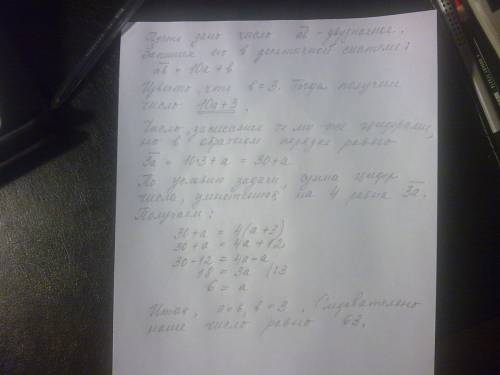 Пусть дано число ab - двузначное.
Запишем его в десятичной системе:
ab = 10a + b
Известно, что b = 3. Тогда получаем
число 10a+3.
Число, записанное теми же цифрами,
но в обратном порядке равно
3a = 10·3 + a = 30 + a
По условию задачи, сумма цифр
числа, умноженная на 4 равна 3a.
Получаем:
30 + a = 4(a + 3)
30 + a = 4a + 12
30 - 12 = 4a - a
18 = 3a |:3
6 = a
Итак, a = 6, b = 3. Следовательно
наше число равно 63.